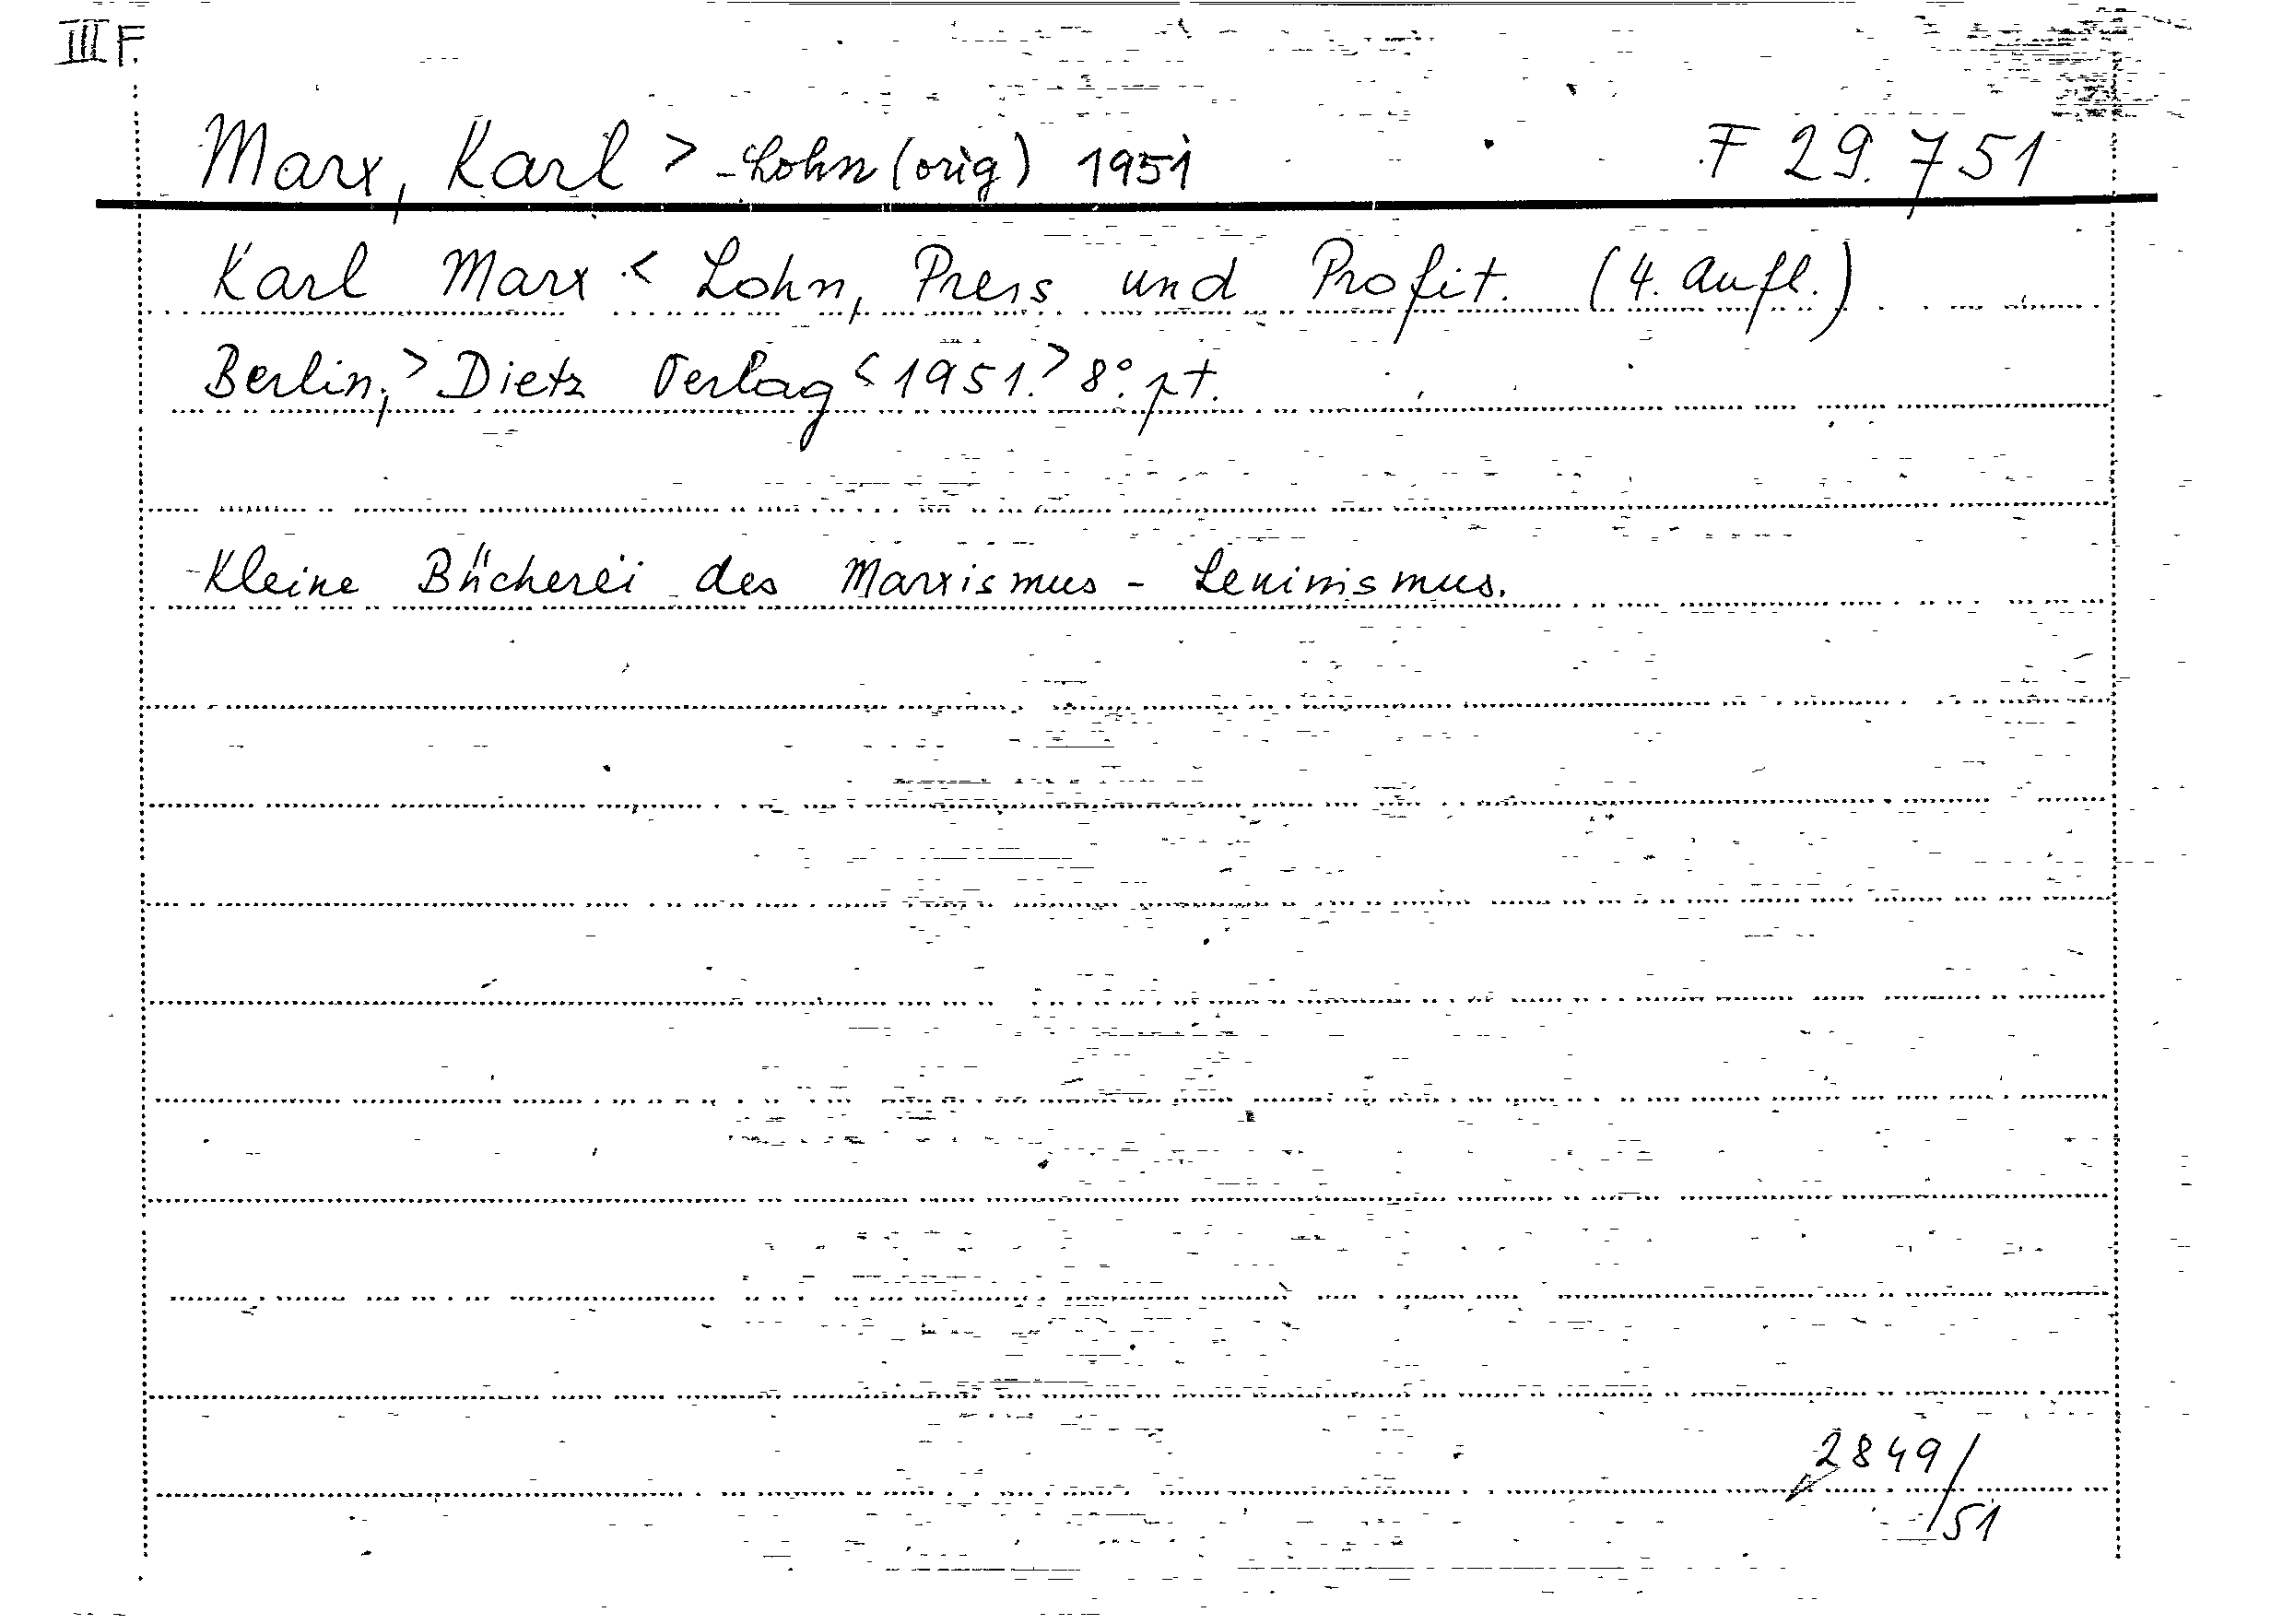 III F.
Marx, Karl > Lohn (orig) 1951 F 29.751
Karl Marx < Lohn, Preis und Profit. (4. Aufl.)
Berlin; > Dietz Verlag < 1951. > 8°. pt.
Kleine Bücherei des Marxismus - Leninismus.
2849/
51